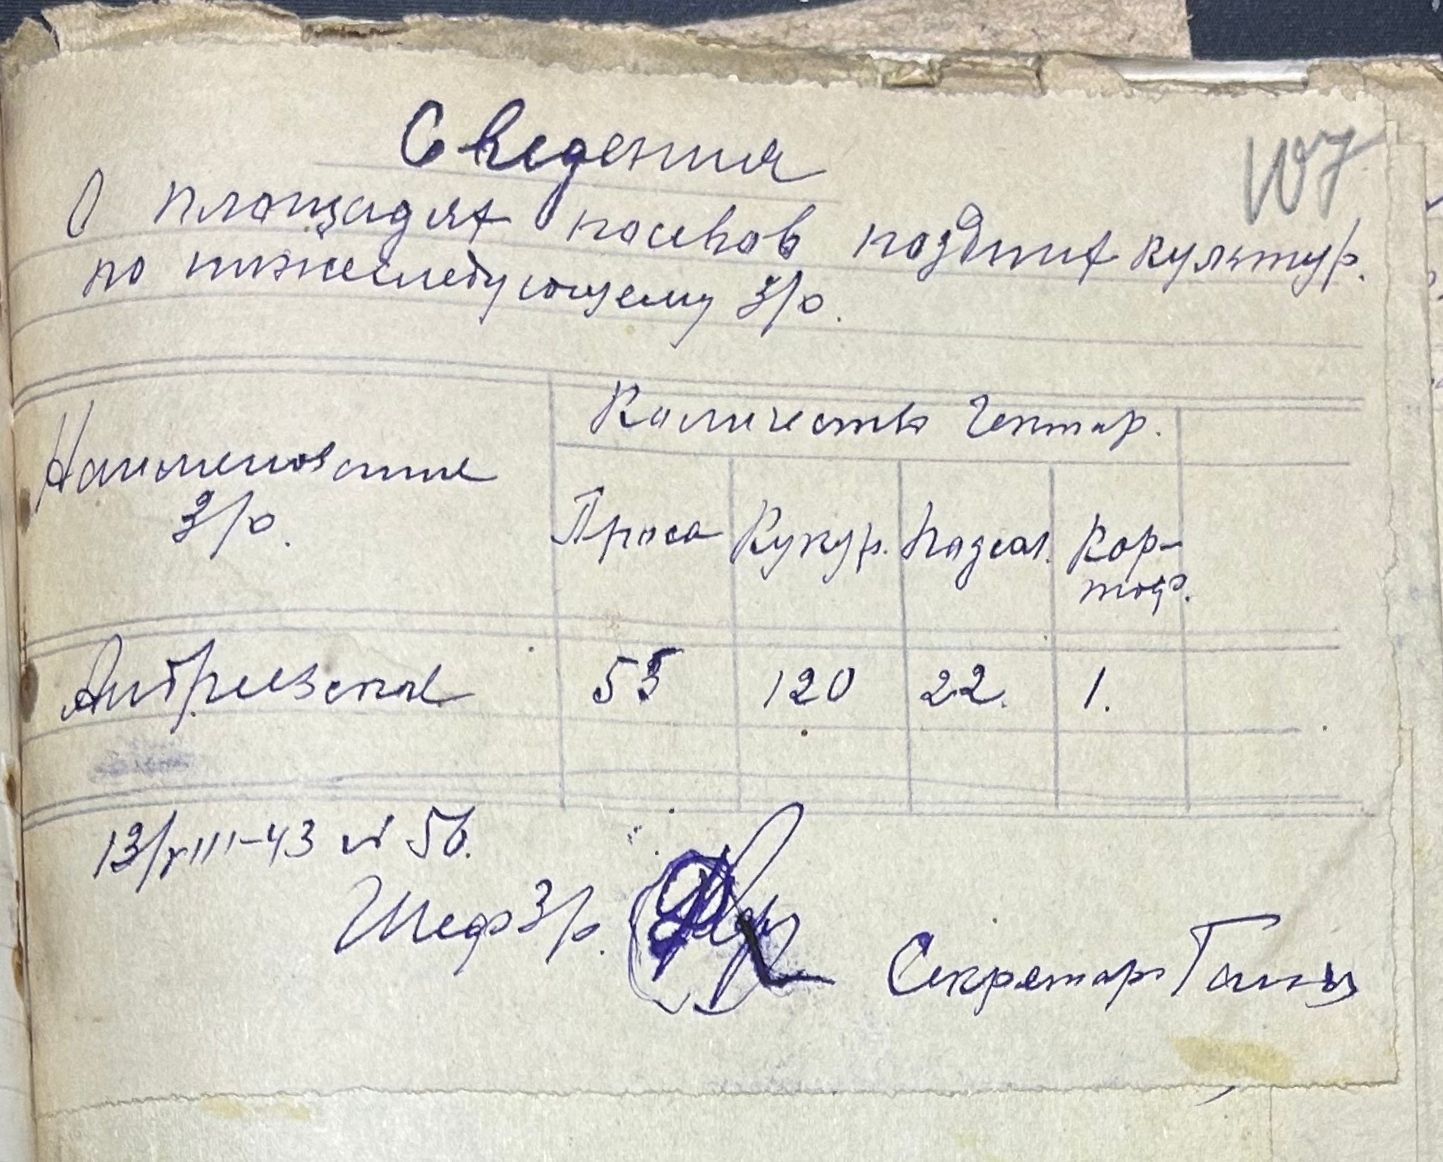 107
Сведения
О площадях посевов поздних культур.
по нижеследующему З/о.
Количество Гектар.
Наименование
З/о.
Проса Кукур. Подсол. Кар-
тоф.
55 120 22. 1.
13/VIII-43 № 56.
Шеф З/о.
Секретарь